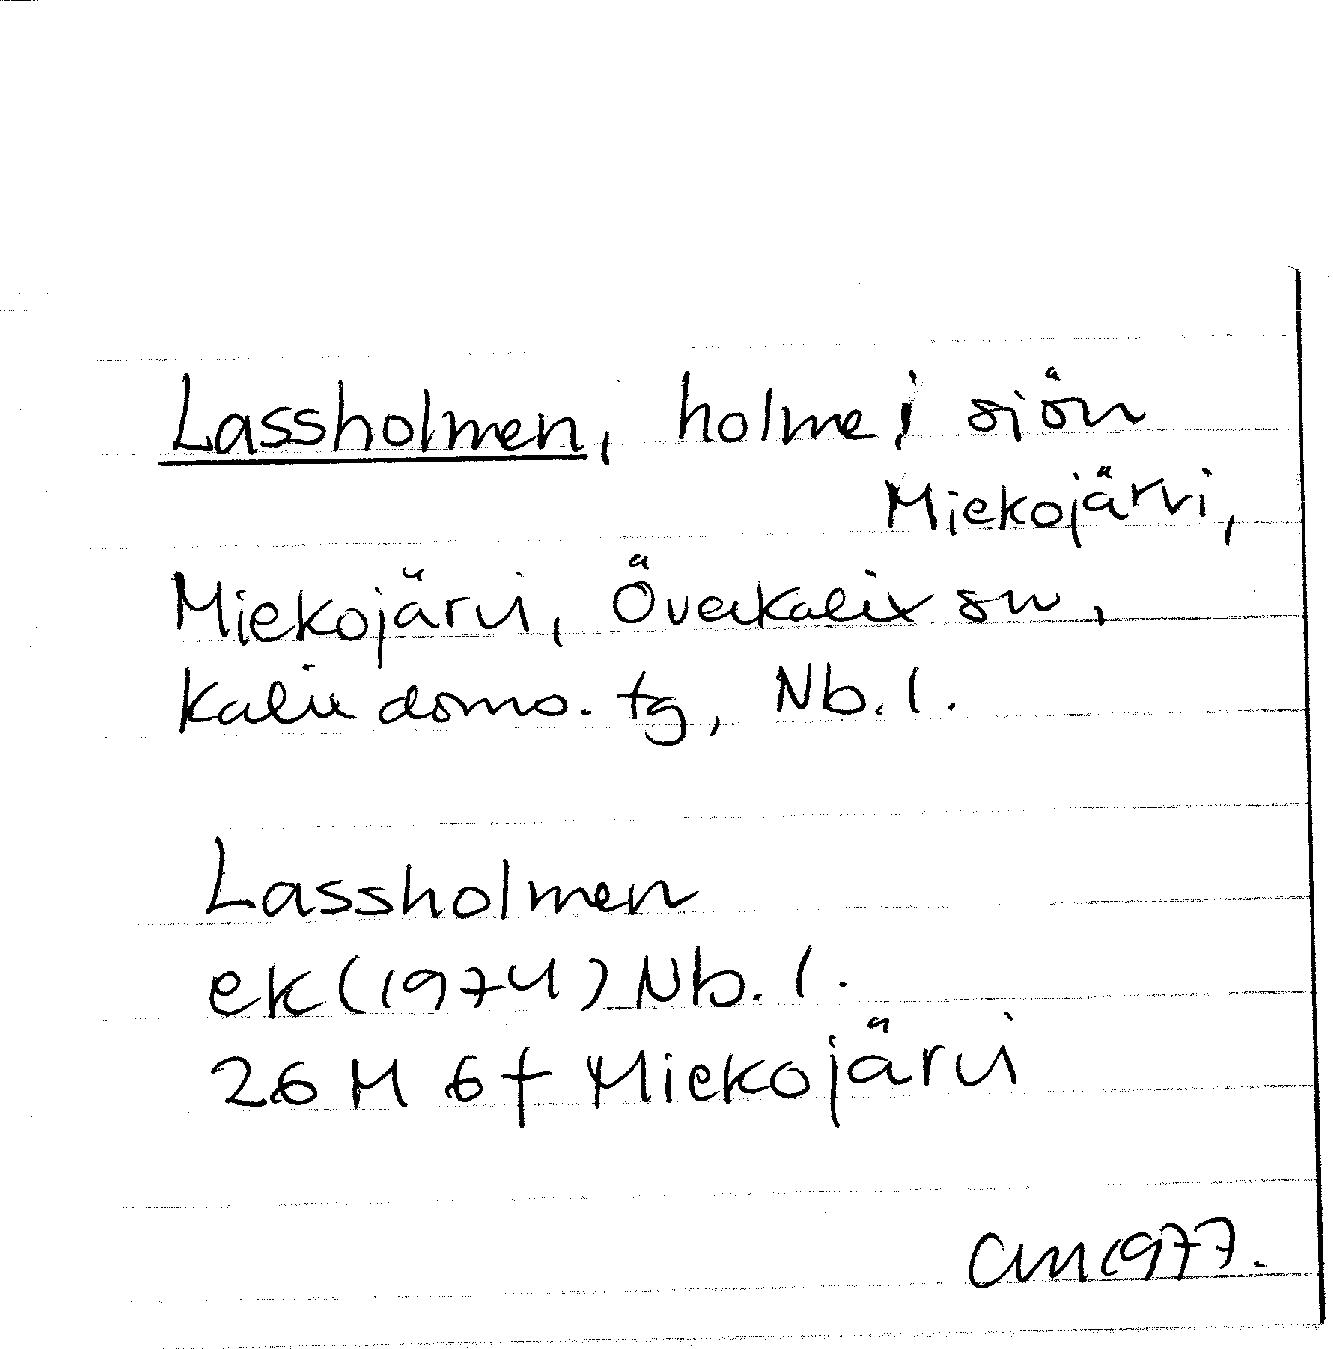 Lassholmen, holme i sjön
Miekojärvi,
Miekojärvi, Överkalix sn,
Kalix doms. tg, Nb. l.
Lassholmen
ek (1974) Nb. l.
26 M 6 f Miekojärvi
CM 1977.